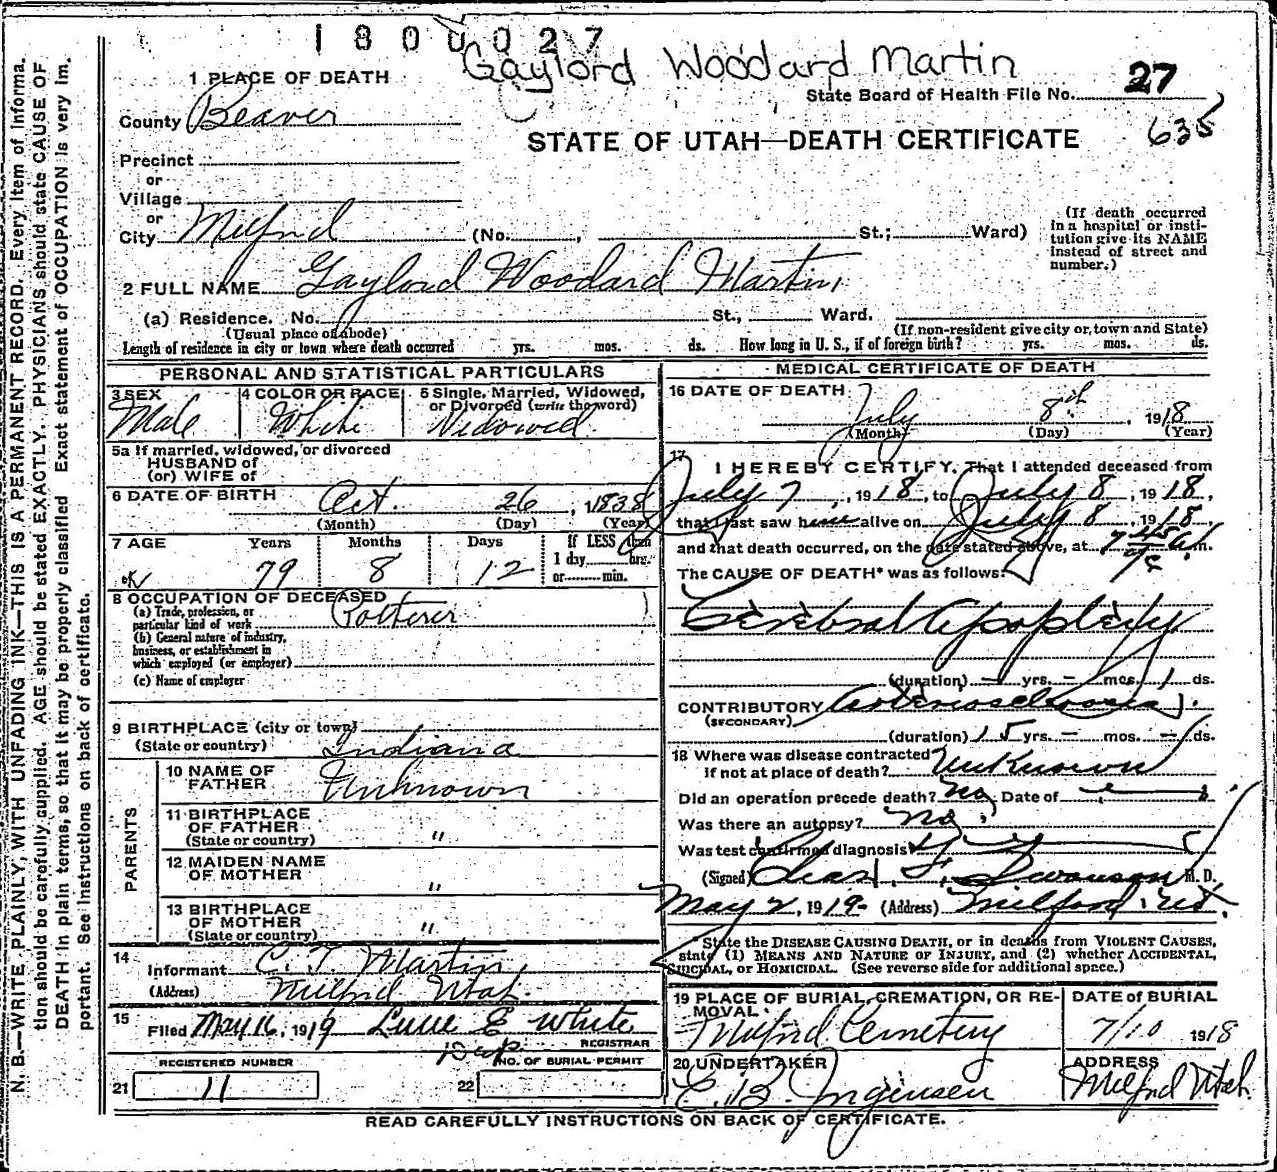 1800027
Gaylord Woodard Martin
State Board of Health File No. 27
635
STATE OF UTAH—DEATH CERTIFICATE
1 PLACE OF DEATH
County Beaver
Precinct
or
Village
or
City Milford (No. , St.; Ward)
(If death occurred in a hospital or insti-
tution give its NAME
instead of street and
number.)
2 FULL NAME Gaylord Woodard Martin
(a) Residence. No. St., Ward.
(Usual place of abode) (If non-resident give city or town and State)
Length of residence in city or town where death occurred yrs. mos. ds. How long in U. S., if of foreign birth? yrs. mos. ds.
PERSONAL AND STATISTICAL PARTICULARS
3 SEX 4 COLOR OR RACE 5 Single, Married, Widowed,
or Divorced (write the word)
Male White Widowed
5a If married, widowed, or divorced
HUSBAND of
(or) WIFE of
6 DATE OF BIRTH Oct. 26, 1838
(Month) (Day) (Year)
7 AGE Years Months Days If LESS than
1 day hrs.
or min.
OK 79 8 12
8 OCCUPATION OF DECEASED
(a) Trade, profession, or
particular kind of work
(b) General nature of industry,
business, or establishment in
which employed (or employer)
(c) Name of employer
9 BIRTHPLACE (city or town)
(State or country) Indiana
PARENTS
10 NAME OF
FATHER Unknown
11 BIRTHPLACE
OF FATHER
(State or country) "
12 MAIDEN NAME
OF MOTHER "
13 BIRTHPLACE
OF MOTHER
(State or country) "
14
Informant C. T. Martin
(Address) Milford Utah
15
Filed May 16, 1919 Lucie E White
REGISTRAR
REGISTERED NUMBER NO. OF BURIAL PERMIT
21 11 22
MEDICAL CERTIFICATE OF DEATH
16 DATE OF DEATH
July 8th, 1918
(Month) (Day) (Year)
17
I HEREBY CERTIFY, That I attended deceased from
July 7, 1918, to July 8, 1918,
that I last saw him alive on July 8, 1918,
and that death occurred, on the date stated above, at 7 45 a. m.
The CAUSE OF DEATH* was as follows:
Cerebral Apoplexy
(duration) – yrs. – mos. 1 ds.
CONTRIBUTORY Arteriosclerosis
(SECONDARY)
(duration) 15 yrs. – mos. – ds.
18 Where was disease contracted
If not at place of death? Unknown
Did an operation precede death? No Date of
Was there an autopsy? No
Was test confirmed diagnosis
(Signed) Chas. F. Swanson M. D.
May 2, 1919 (Address) Milford, Ut.
*State the DISEASE CAUSING DEATH, or in deaths from VIOLENT CAUSES,
state (1) MEANS AND NATURE OF INJURY, and (2) whether ACCIDENTAL,
SUICIDAL, OR HOMICIDAL. (See reverse side for additional space.)
19 PLACE OF BURIAL, CREMATION, OR RE-
MOVAL DATE of BURIAL
Milford Cemetery 7/10 1918
20 UNDERTAKER ADDRESS
C. B. Jorgensen Milford Utah.
READ CAREFULLY INSTRUCTIONS ON BACK OF CERTIFICATE.
N. B.—WRITE PLAINLY, WITH UNFADING INK—THIS IS A PERMANENT RECORD. Every item of informa-
tion should be carefully supplied. AGE should be stated EXACTLY. PHYSICIANS should state CAUSE OF
DEATH in plain terms, so that it may be properly classified. Exact statement of OCCUPATION is very im-
portant. See instructions on back of certificate.